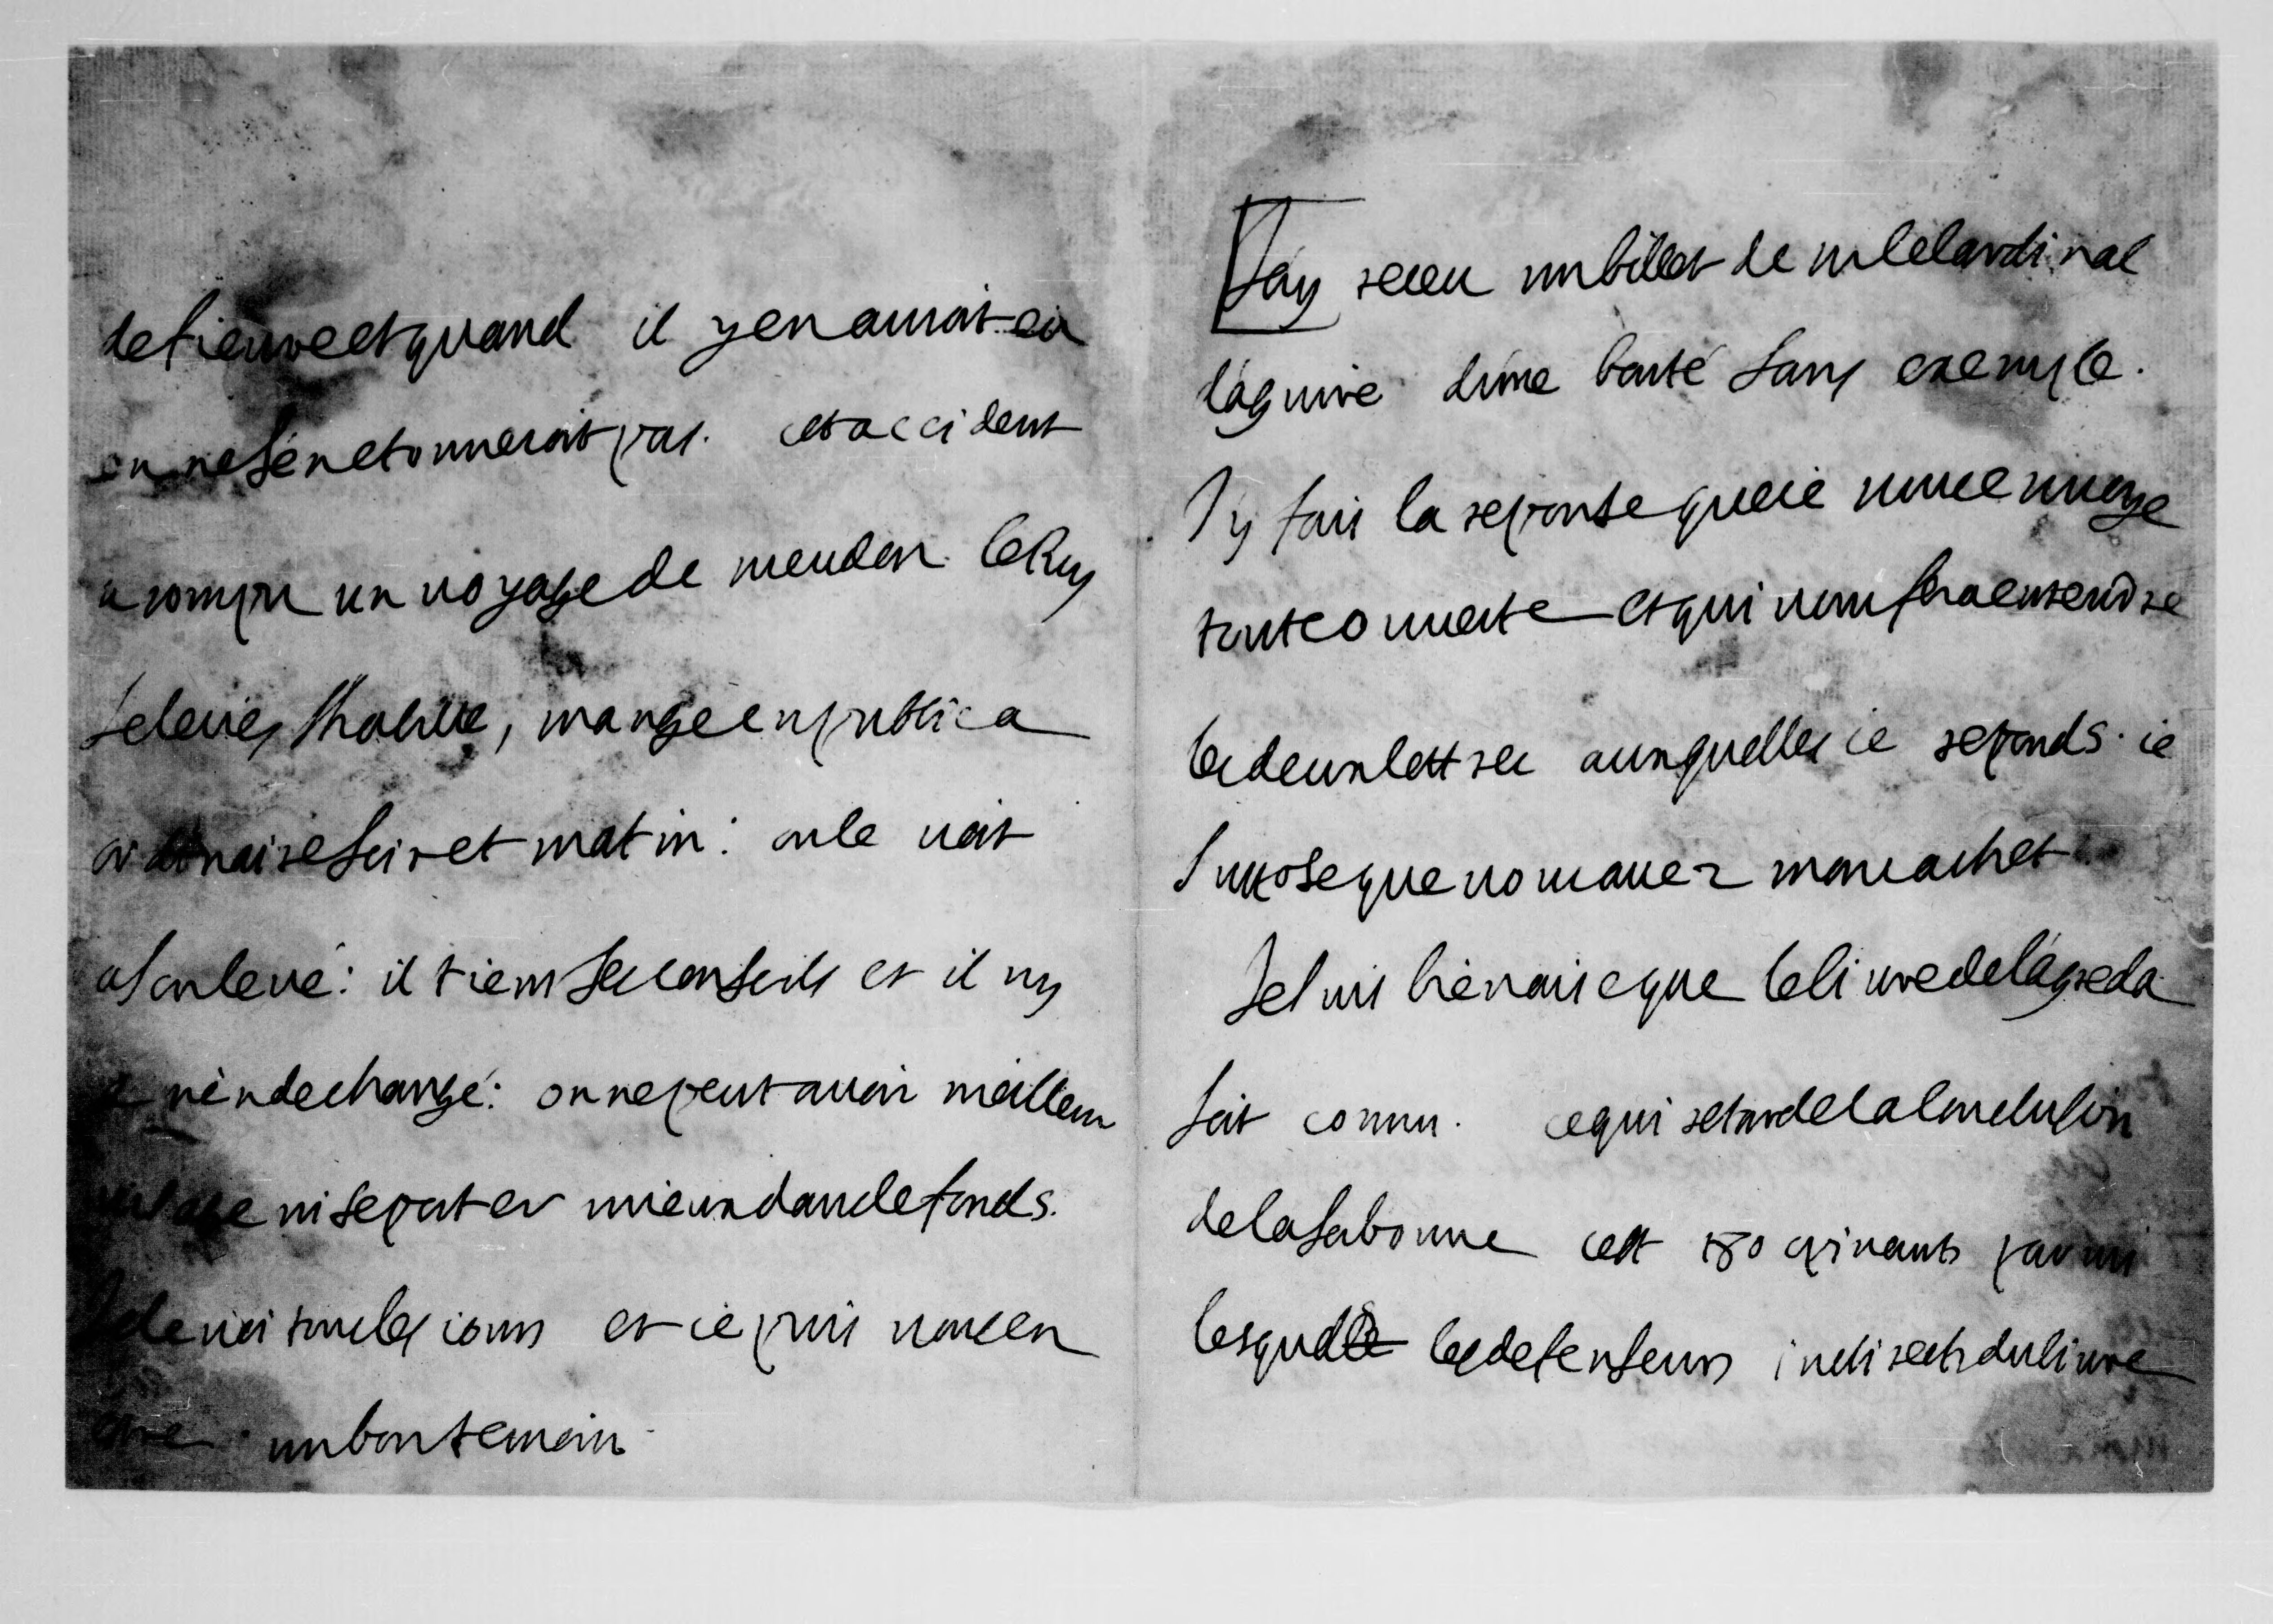 de fieuvre et quand il y en auroit eu
on ne sén etonneroit pas. cet accident
a rompu un voyage de meudon. le Roy
se leve, shabille, mange en public a
ordinaire soir et matin: on le voit
a son levé: il tient ses conseils et il ny
a rièn de changé: on ne peut avoir meilleur
visage ni se porter mieux dans le fonds.
Je le voi tous les jours et ie puis vous en
estre un bon temoin.
Jáy receu un billet de m le Cardinal
dáguirre dúne bonté sans exemple.
J'y fais la reponse que ie vous envoye
toute ouverte et qui vous fera entendre
les deux lettres auxquelles ie reponds. ie
suppose que vous avez mon cachet
Je suis bièn aise que le livre de lágreda
soit connu. ce qui retarde la Conclusion
de la Sorbonne cest 180 opinants parmi
lesquels les defenseurs indirects du livre